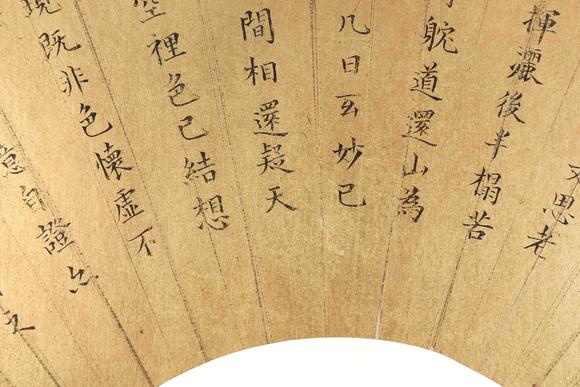 思老
揮灑後半榻苦
道還山為
几日玄妙已
間相還疑天
空裡色已結想
現既非色懷虛不
意自證亦